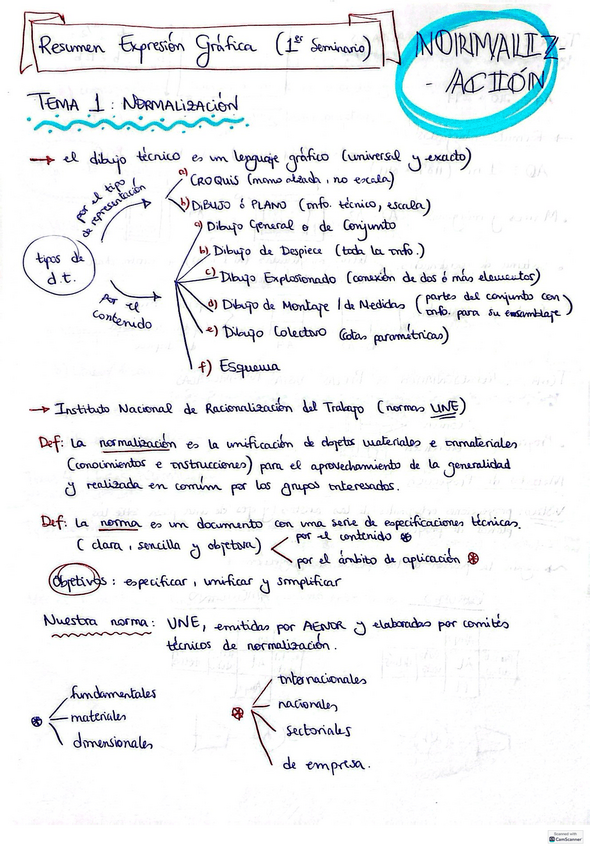 Resumen Expresión Gráfica (1er Seminario)
NORMALIZ-
- ACIÓN
TEMA 1: NORMALIZACIÓN
→ el dibujo técnico es un lenguaje gráfico (universal y exacto)
tipos de
d.t.
por el tipo
de representación
a) CROQUIS (mano alzada, no escala)
b) DIBUJO ó PLANO (info. técnico, escala)
por el
contenido
a) Dibujo General o de Conjunto
b) Dibujo de Despiece (toda la info.)
c) Dibujo Explosionado (conexión de dos ó más elementos)
d) Dibujo de Montaje / de Medidas (partes del conjunto con
info. para su ensamblaje)
e) Dibujo Colectivo (cotas paramétricas)
f) Esquema
→ Instituto Nacional de Racionalización del Trabajo (normas UNE)
Def: La normalización es la unificación de objetos materiales e inmateriales
(conocimientos e instrucciones) para el aprovechamiento de la generalidad
y realizada en común por los grupos interesados.
Def: La norma es un documento con una serie de especificaciones técnicas.
(clara, sencilla y objetiva)
por el contenido
por el ámbito de aplicación
Objetivos: especificar, unificar y simplificar
Nuestra norma: UNE, emitidas por AENOR y elaboradas por comités
técnicos de normalización.
fundamentales
materiales
dimensionales
internacionales
nacionales
sectoriales
de empresa.
Scanned with
CamScanner